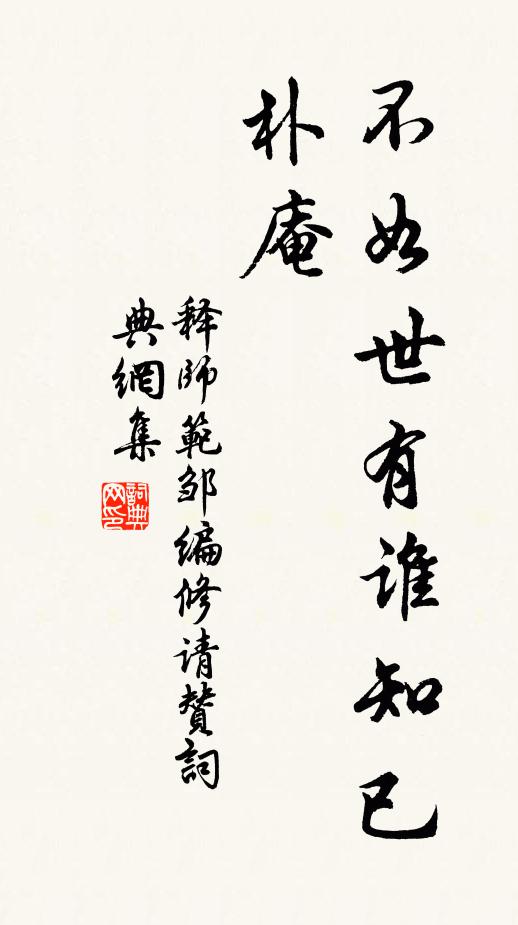 不如世有谁知已
朴庵
释師範邹编修请賛詞
典網集
詞典网印